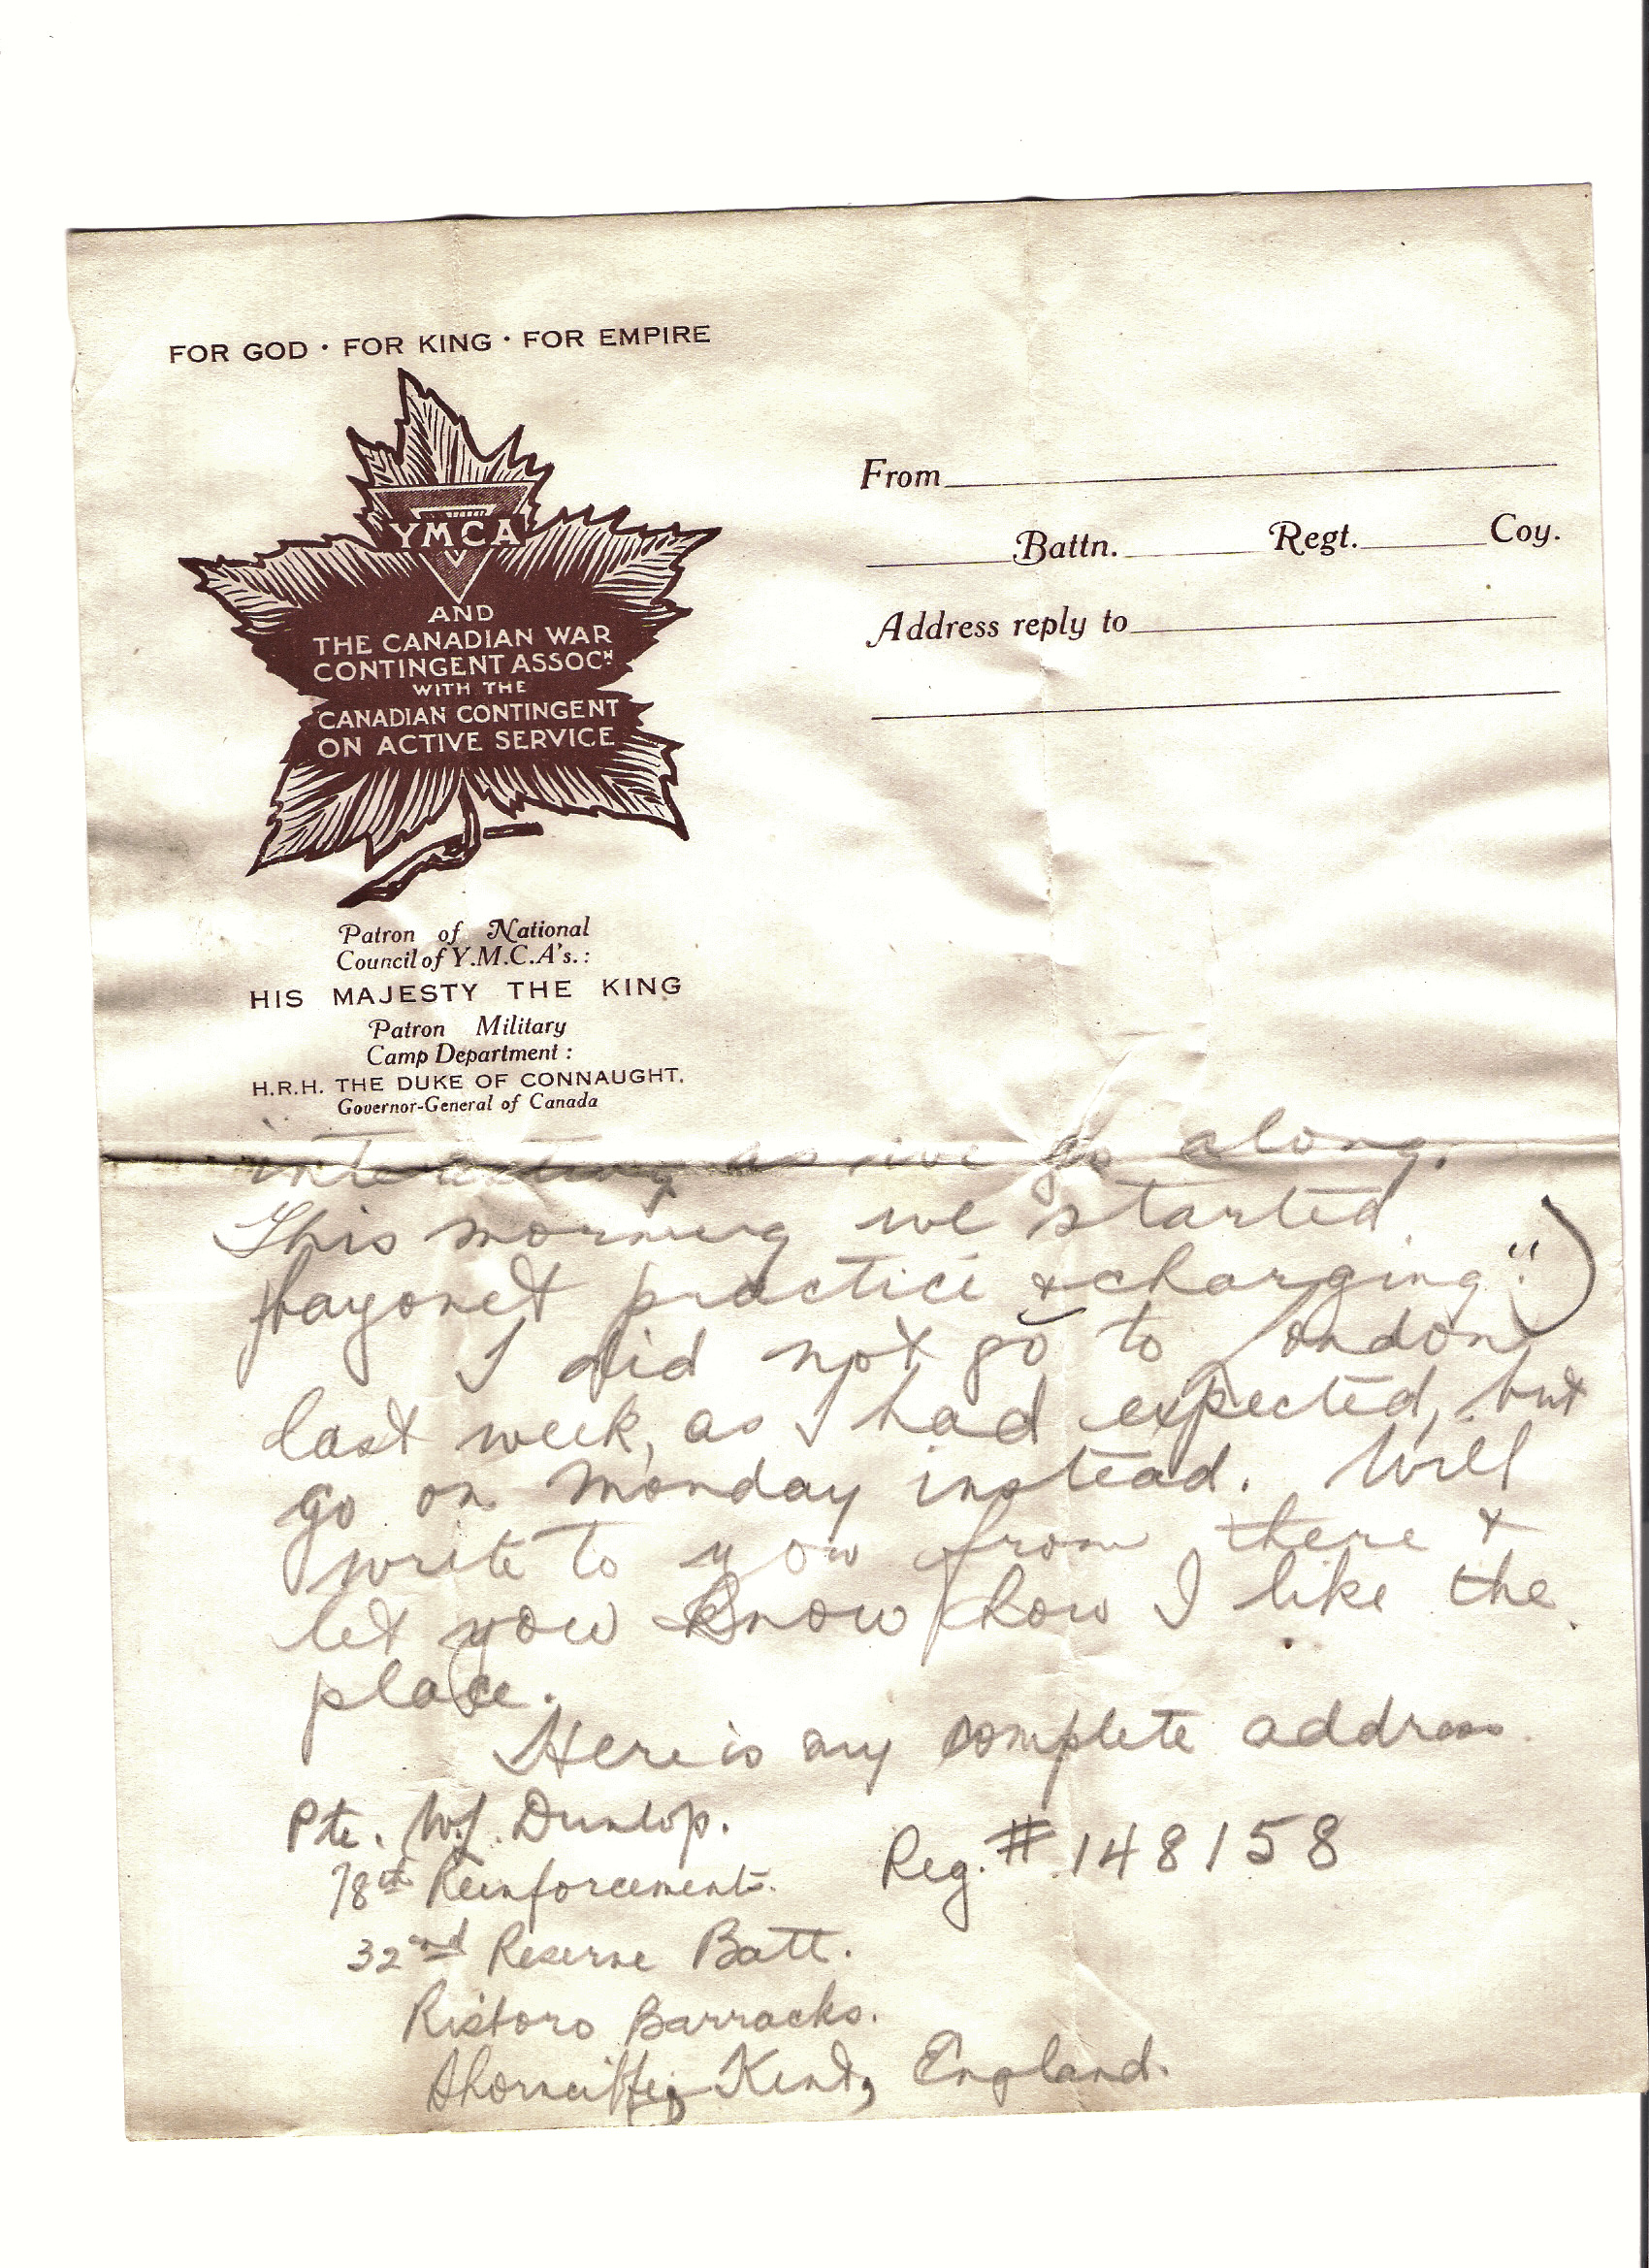 FOR GOD · FOR KING · FOR EMPIRE
YMCA
AND
THE CANADIAN WAR
CONTINGENT ASSOCN
WITH THE
CANADIAN CONTINGENT
ON ACTIVE SERVICE
Patron of National
Council of Y.M.C.A's.:
HIS MAJESTY THE KING
Patron Military
Camp Department:
H.R.H. THE DUKE OF CONNAUGHT.
Governor-General of Canada
From
Battn. Regt. Coy.
Address reply to
interesting as we go along.
This morning we started
bayonet practice & charging")
I did not go to London
last week, as I had expected, but
go on Monday instead. Will
write to you from there &
let you know how I like the
place.
Here is my complete address
Pte. W.J. Dunlop.
78th Reinforcements. Reg. # 148158
32nd Reserve Batt.
Ristoro Barracks.
Shorncliffe, Kent, England.